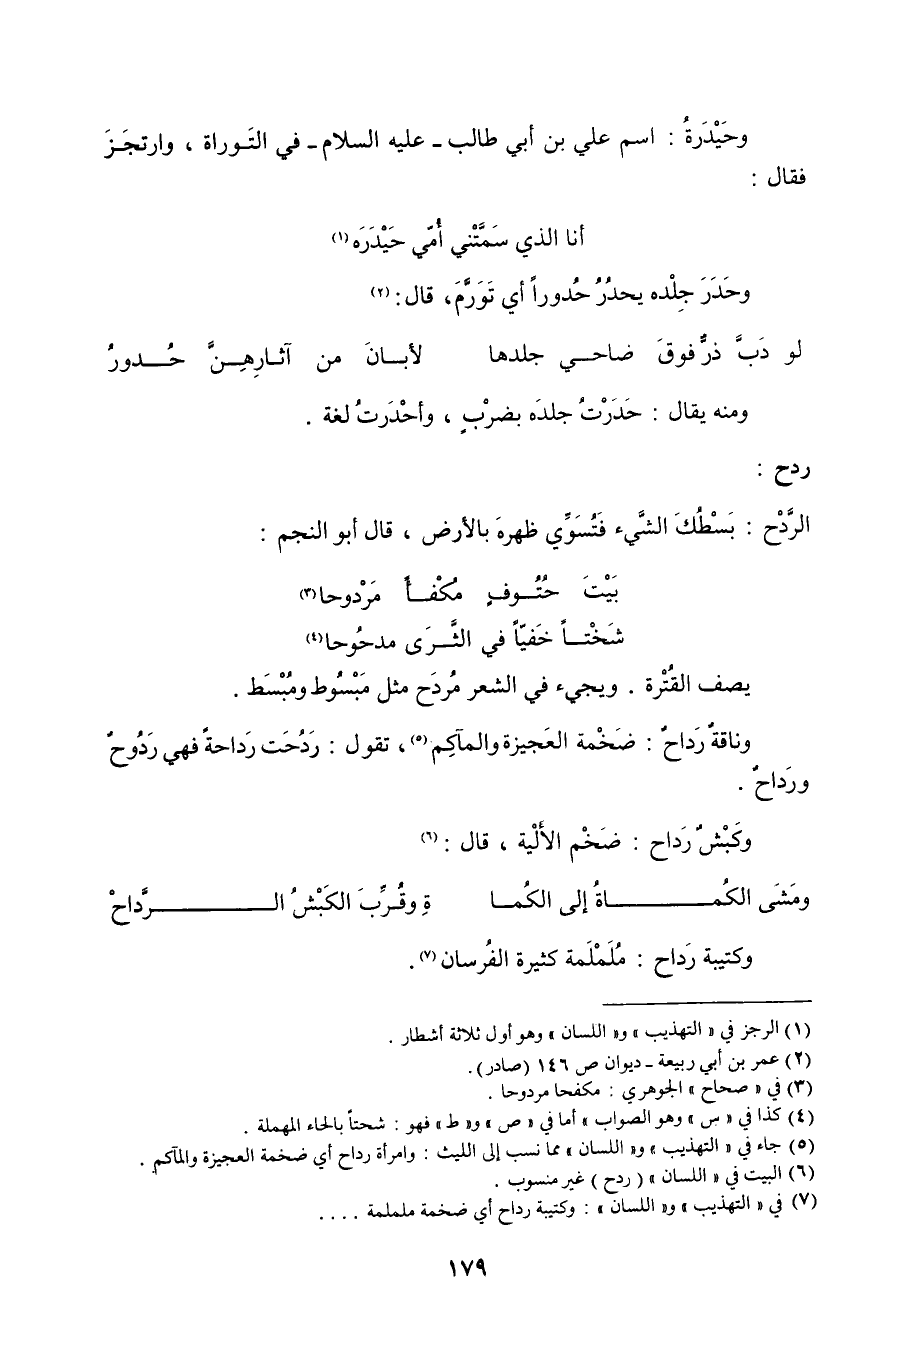 وحَيْدَرَةُ : اسم علي بن أبي طالب - عليه السلام - في التَوراة ، وارتجَزَ
فقال :
أنا الذي سَمَتَّني أُمّي حَيْدَرَه (١)
وحَدَرَ جِلْده يحدُرُ حُدوراً أي تَوَرَّمَ، قال: (٢)
لو دَبَّ ذرٌّ فوقَ ضاحي جلدها لأبانَ من آثارِهِنَّ حُدورُ
ومنه يقال : حَدَرْتُ جلدَه بضرْبٍ ، وأحْدَرتُ لغة .
ردح :
الرَّدْح : بَسْطُكَ الشَّيء فَتُسَوِّي ظهرهَ بالأرض ، قال أبو النجم :
بَيْتَ حُتُوفٍ مُكْفأً مَرْدوحا (٣)
شَخْتاً خَفيّاً في الثَّرَى مدحُوحا (٤)
يصف القُتْرة . ويجيء في الشعر مُردَح مثل مَبْسُوط ومُبْسَط .
وناقةٌ رَداحٌ : ضَخْمة العَجيزة والمآكِم (٥) ، تقول : رَدُحَت رَداحةً فهي رَدُوحٌ
ورَداحٌ .
وكَبْشٌ رَداح : ضَخْم الألْية ، قال : (٦)
ومَشَى الكُماةُ إلى الكُما ةِ وقُرِّبَ الكَبْشُ الرَّداحْ
وكتيبة رَداح : مُلَمْلَمة كثيرة الفُرسان (٧) .
(١) الرجز في « التهذيب » و« اللسان » وهو أول ثلاثة أشطار .
(٢) عمر بن أبي ربيعة - ديوان ص ١٤٦ (صادر) .
(٣) في « صحاح » الجوهري : مكفحا مردوحا .
(٤) كذا في « س » وهو الصواب » أما في « ص » و« ط » فهو : شحتاً بالحاء المهملة .
(٥) جاء في « التهذيب » و« اللسان » مما نسب إلى الليث : وامرأة رداح أي ضخمة العجيزة والمآكم .
(٦) البيت في « اللسان » ( ردح ) غير منسوب .
(٧) في « التهذيب » و« اللسان » : وكتيبة رداح أي ضخمة ململمة . . . .
١٧٩